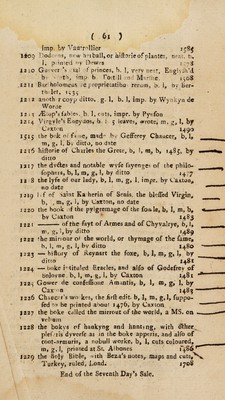 ( 61 )
imp. by Vautrollier 1585
1209 Dodoens, new herball, or historie of plantes, neat, b.
l. printed by Dewes 1578
1210 Gower's trial of princes, b. l, very neat, English'd
by North, imp. b Tottill and Marshe. 1568
1211 Bartholomeus de proprietatibus rerum, b. l, by Ber-
thelet, 1535
1212 another copy ditto. g. l. b. l. imp. by Wynkyn de
Worde
1213 Æsop's fables. b. l. cuts, impr. by Pynson
1214 Virgyle's Eneydos, b. l. 5 leaves, wrote, m. g, l, by
Caxton 1490
1215 the bok of fame, made by Gefferey Chaucer, b, l,
m, g, l, by ditto, no date
1216 historie of Charles the Grete, b, l, m, b, 1485, by
ditto
1217 the dyctes and notable wyse sayenges of the philo-
sophers, b, l, m, g, l, by ditto 1477
1218 the lyfe of our lady, b, l, m, g, l, impr. by Caxton,
no date
1219 lyf of Saint Katherin of Senis, the blessed Virgin,
b, l, m, g, l, by Caxton, no date
1220 the book of the pylgremage of the soule, b, l, m, b,
by Caxton 1483
1221 —— of the fayt of Armes and of Chyvalrye, b, l,
m, g, l, by ditto 1489
1222 the mirrour of the world, or thymage of the same,
b, l, m, g, l, by ditto 1480
1223 — history of Reynart the foxe, b, l, m, g, l, by
ditto 1481
1224 — boke intituled Eracles, and also of Godefrey of
boloyne, b, l, m, g, l, by Caxton 1481
1225 Gower de confessione Amantis, b, l, m, g, l, by
Caxton 1483
1226 Chaucer's workes, the first edit. b, l, m, g, l, suppo-
sed to be printed about 1476, by Caxton
1227 the boke called the mirrour of the world, a MS. on
vellum
1228 the bokys of haukyng and hunting, with other
plesuris dyverse as in the boke apperis, and also of
coot-armuris, a nobull worke, b, l, cuts coloured,
m, g, l, printed at St. Albones 1486
1229 the holy Bible, with Beza's notes, maps and cuts,
Turkey, ruled, Lond. 1708
End of the Seventh Day's Sale.